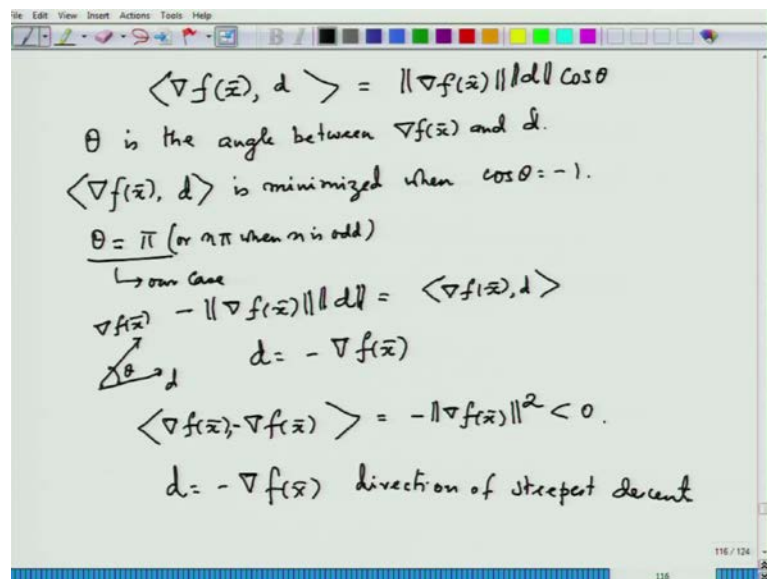 ile Edit View Insert Actions Tools Help
B I
⟨∇f(x̄), d⟩ = ||∇f(x̄)|| ||d|| cosθ
θ is the angle between ∇f(x̄) and d.
⟨∇f(x̄), d⟩ is minimized when cosθ = -1.
θ = π (or nπ when n is odd)
↳ our case
∇f(x̄) - ||∇f(x̄)|| ||d|| = ⟨∇f(x̄), d⟩
θ d
d = - ∇f(x̄)
⟨∇f(x̄), -∇f(x̄)⟩ = -||∇f(x̄)||² < 0.
d = - ∇f(x̄) direction of steepest descent
116 / 124
116